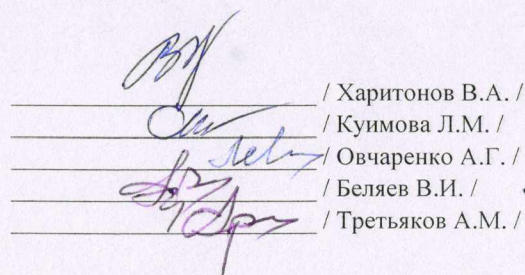 / Харитонов В.А. /
/ Куимова Л.М. /
/ Овчаренко А.Г. /
/ Беляев В.И. /
/ Третьяков А.М. /